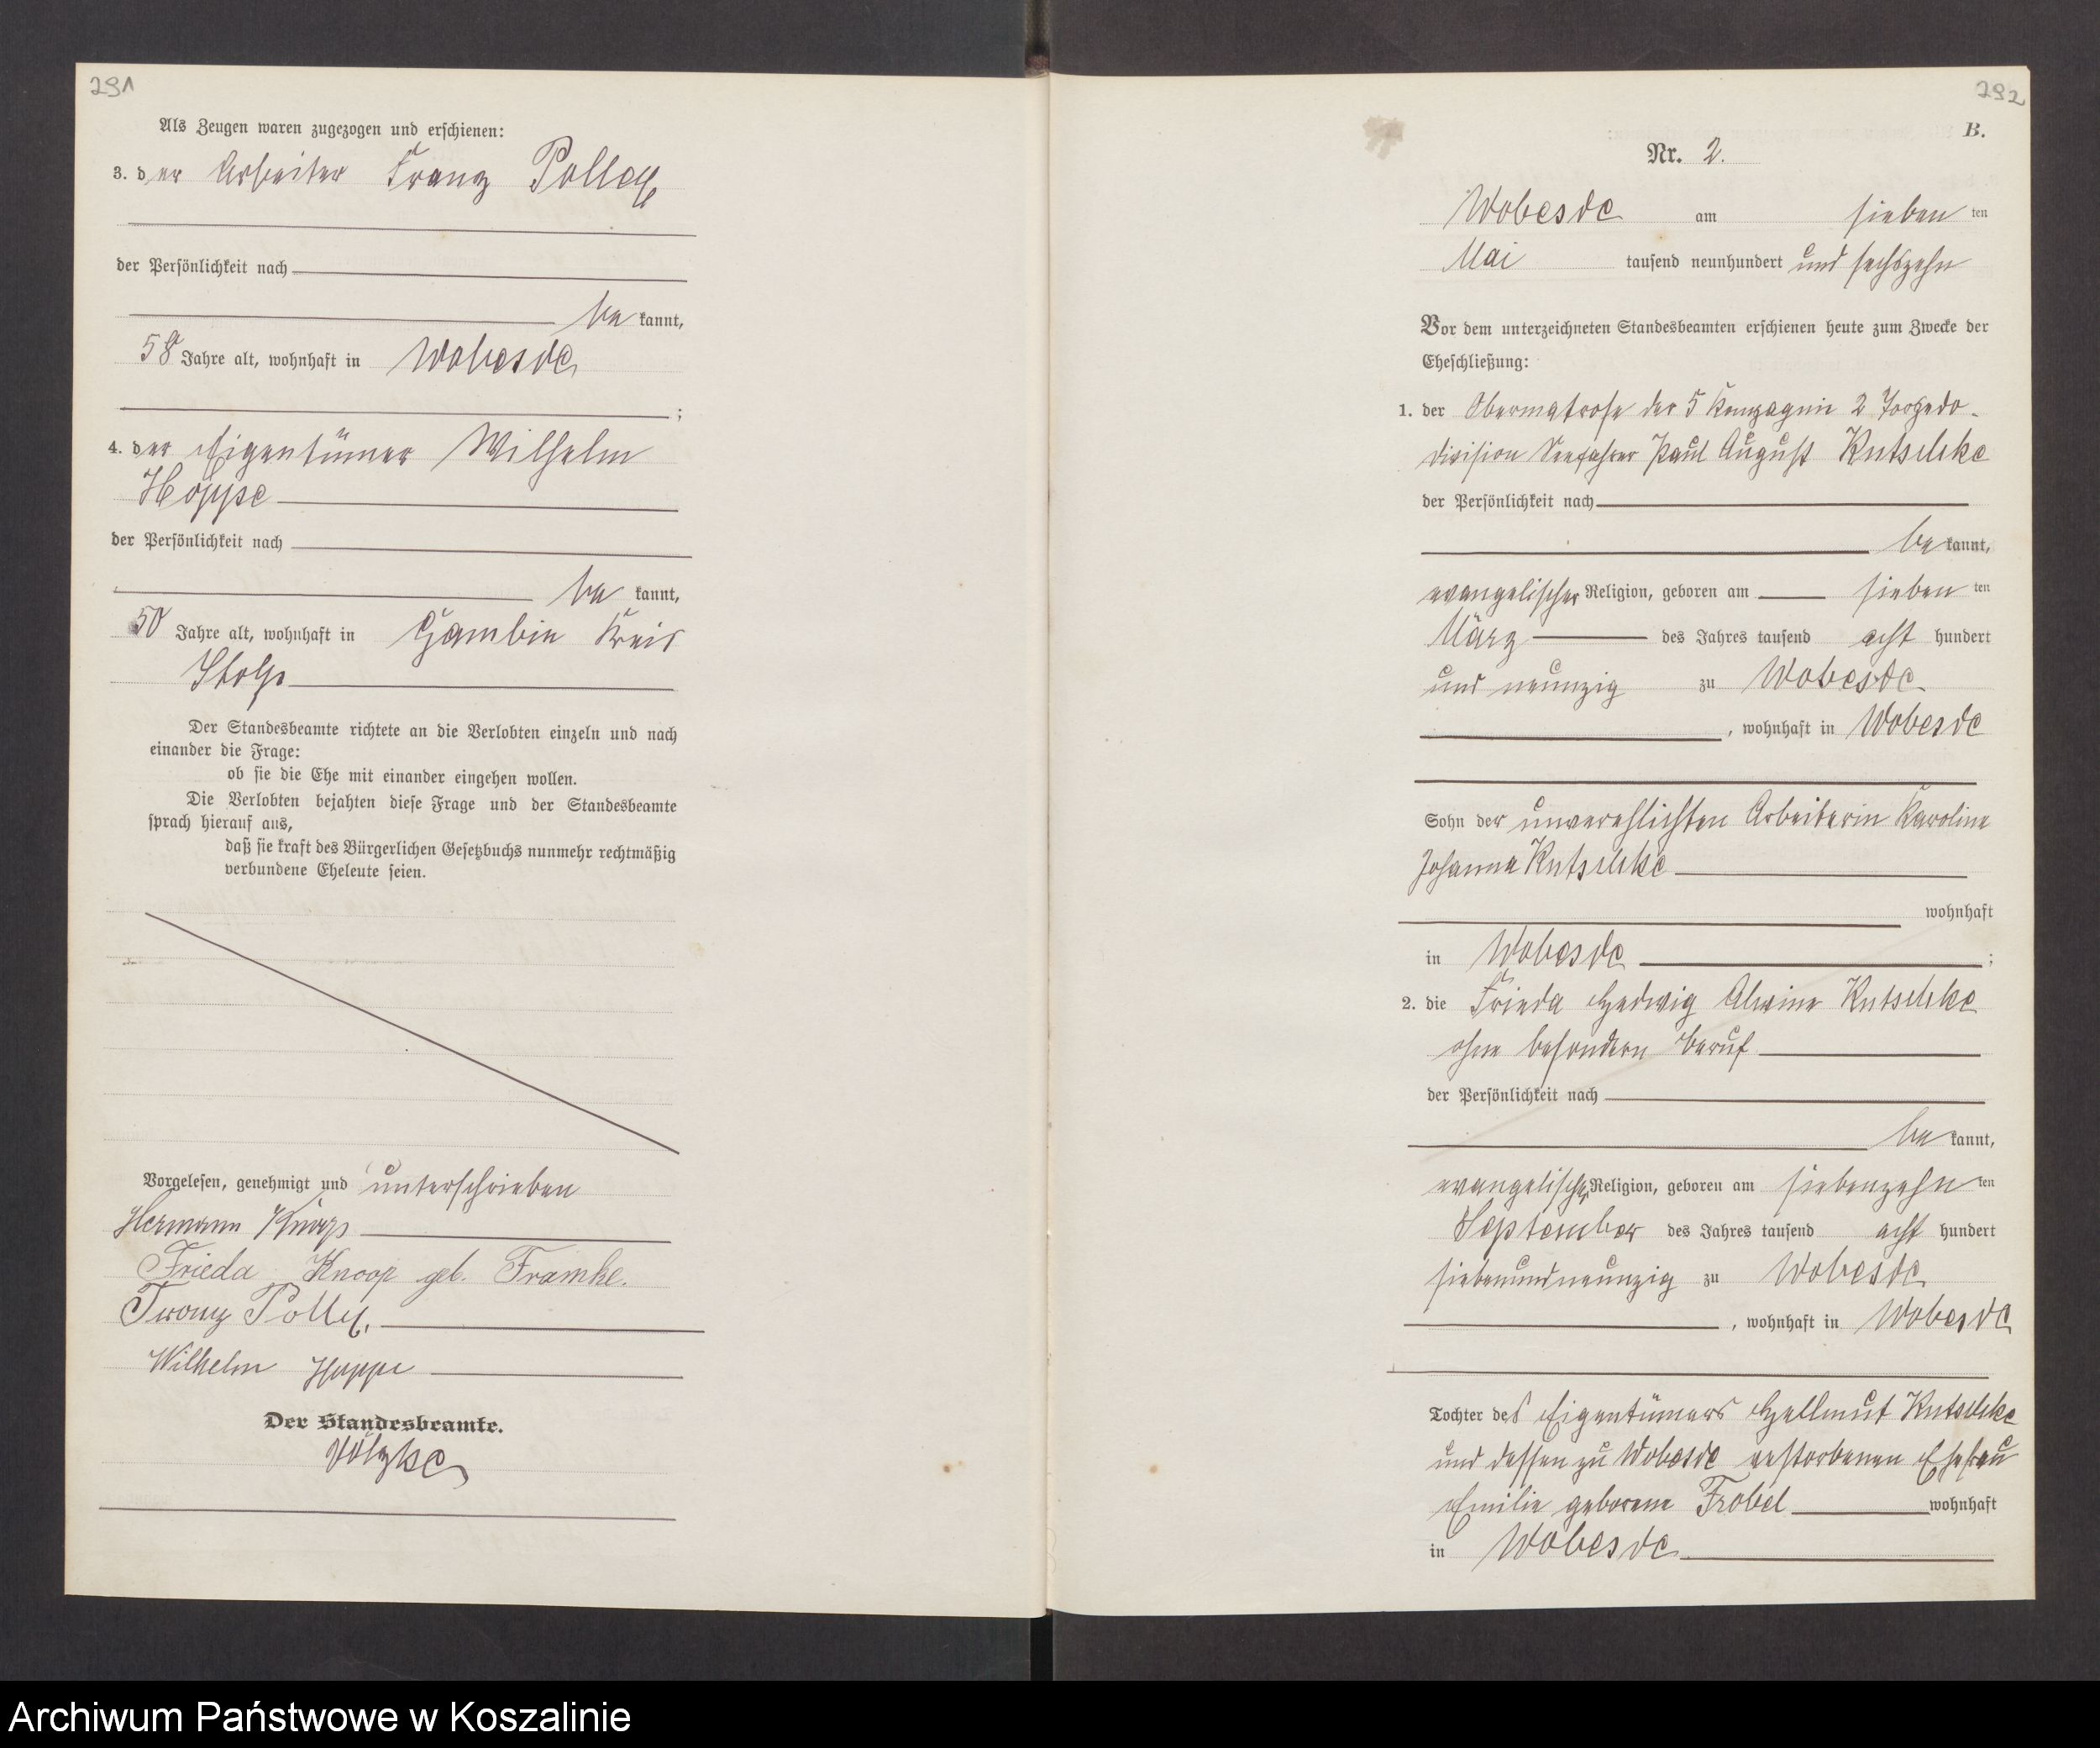 291
Als Zeugen waren zugezogen und erschienen:
3. der Arbeiter Franz Polley
der Persönlichkeit nach
be kannt,
58 Jahre alt, wohnhaft in Wobesde
;
4. der Eigentümer Wilhelm
Hoppe
der Persönlichkeit nach
be kannt,
50 Jahre alt, wohnhaft in Gambin Kreis
Stolp
Der Standesbeamte richtete an die Verlobten einzeln und nach
einander die Frage:
ob sie die Ehe mit einander eingehen wollen.
Die Verlobten bejahten diese Frage und der Standesbeamte
sprach hierauf aus,
daß sie kraft des Bürgerlichen Gesetzbuchs nunmehr rechtmäßig
verbundene Eheleute seien.
Vorgelesen, genehmigt und unterschrieben
Hermann Knoop
Frieda Knoop geb. Framke.
Franz Polley.
Wilhelm Hoppe
Der Standesbeamte.
Völzke
292
B.
Nr. 2.
Wobesde am sieben ten
Mai tausend neunhundert und sechszehn
Vor dem unterzeichneten Standesbeamten erschienen heute zum Zwecke der
Eheschließung:
1. der Obermatrose der 5 Kompagnie 2 Torpedo-
division Seefahrer Paul August Kutschke
der Persönlichkeit nach
be kannt,
evangelischer Religion, geboren am sieben ten
März des Jahres tausend acht hundert
und neunzig zu Wobesde
, wohnhaft in Wobesde
Sohn der unverehlichten Arbeiterin Karoline
Johanna Kutschke
wohnhaft
in Wobesde ;
2. die Frieda Hedwig Alwine Kutschke
ohne besondern Beruf
der Persönlichkeit nach
be kannt,
evangelischer Religion, geboren am siebenzehn ten
September des Jahres tausend acht hundert
siebenundneunzig zu Wobesde
, wohnhaft in Wobesde
Tochter des Eigentümers Hellmut Kutschke
und dessen zu Wobesde verstorbenen Ehefrau
Emilie geborene Frobel wohnhaft
in Wobesde
Archiwum Państwowe w Koszalinie